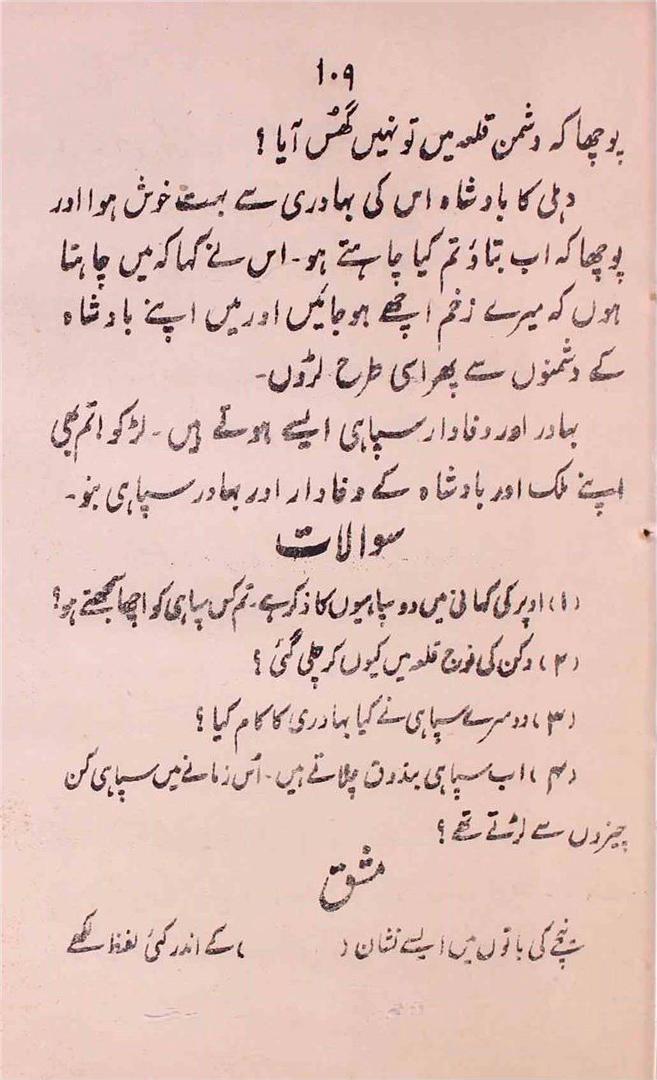 ۱۰۹
پوچھا کہ دشمن قلعہ میں تو نہیں گھس آیا؟
دہلی کا بادشاہ اس کی بہادری سے بہت خوش ہوا اور
پوچھا کہ اب بتاؤ تم کیا چاہتے ہو۔ اس نے کہا کہ میں چاہتا
ہوں کہ میرے زخم اچھے ہو جائیں اور میں اپنے بادشاہ
کے دشمنوں سے پھر اسی طرح لڑوں۔
بہادر اور وفادار سپاہی ایسے ہوتے ہیں۔ لڑکو! تم بھی
اپنے ملک اور بادشاہ کے وفادار اور بہادر سپاہی بنو۔
سوالات
(۱) اوپر کی کہانی میں دو سپاہیوں کا ذکر ہے۔ تم کس سپاہی کو اچھا سمجھتے ہو؟
(۲) دکن کی فوج قلعہ میں کیوں کر چلی گئی؟
(۳) دوسرے سپاہی نے کیا بہادری کا کام کیا؟
(۴) اب سپاہی بندوق چلاتے ہیں۔ اُس زمانے میں سپاہی کن
چیزوں سے لڑتے تھے؟
مشق
نیچے کی باتوں میں ایسے نشان (          ) کے اندر کئی لفظ لکھے